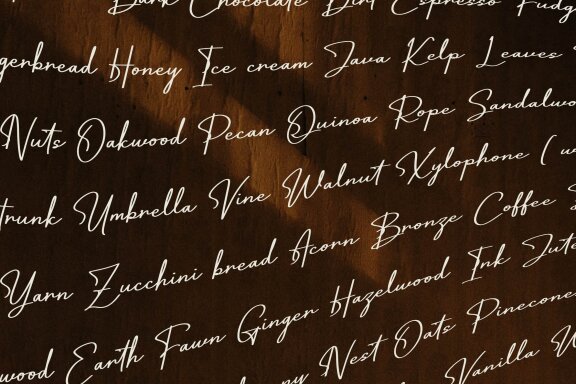 Dark Chocolate Dirt Espresso Fudg
gerbread Honey Ice cream Java Kelp Leaves
Nuts Oakwood Pecan Quinoa Rope Sandalwo
trunk Umbrella Vine Walnut Xylophone ( w
Yarn Zucchini bread Acorn Bronze Coffee
wood Earth Fawn Ginger Hazelwood Ink Jute
ny Nest Oats Pinecone
Vanilla W